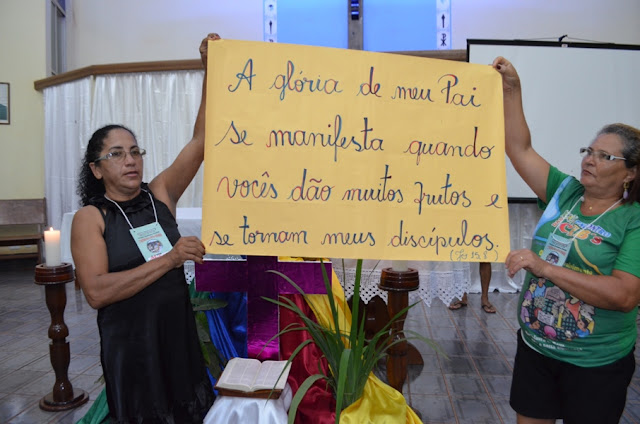 A glória de meu Pai
se manifesta quando
vocês dão muitos frutos e
se tornam meus discípulos.
(Jo 15,8)